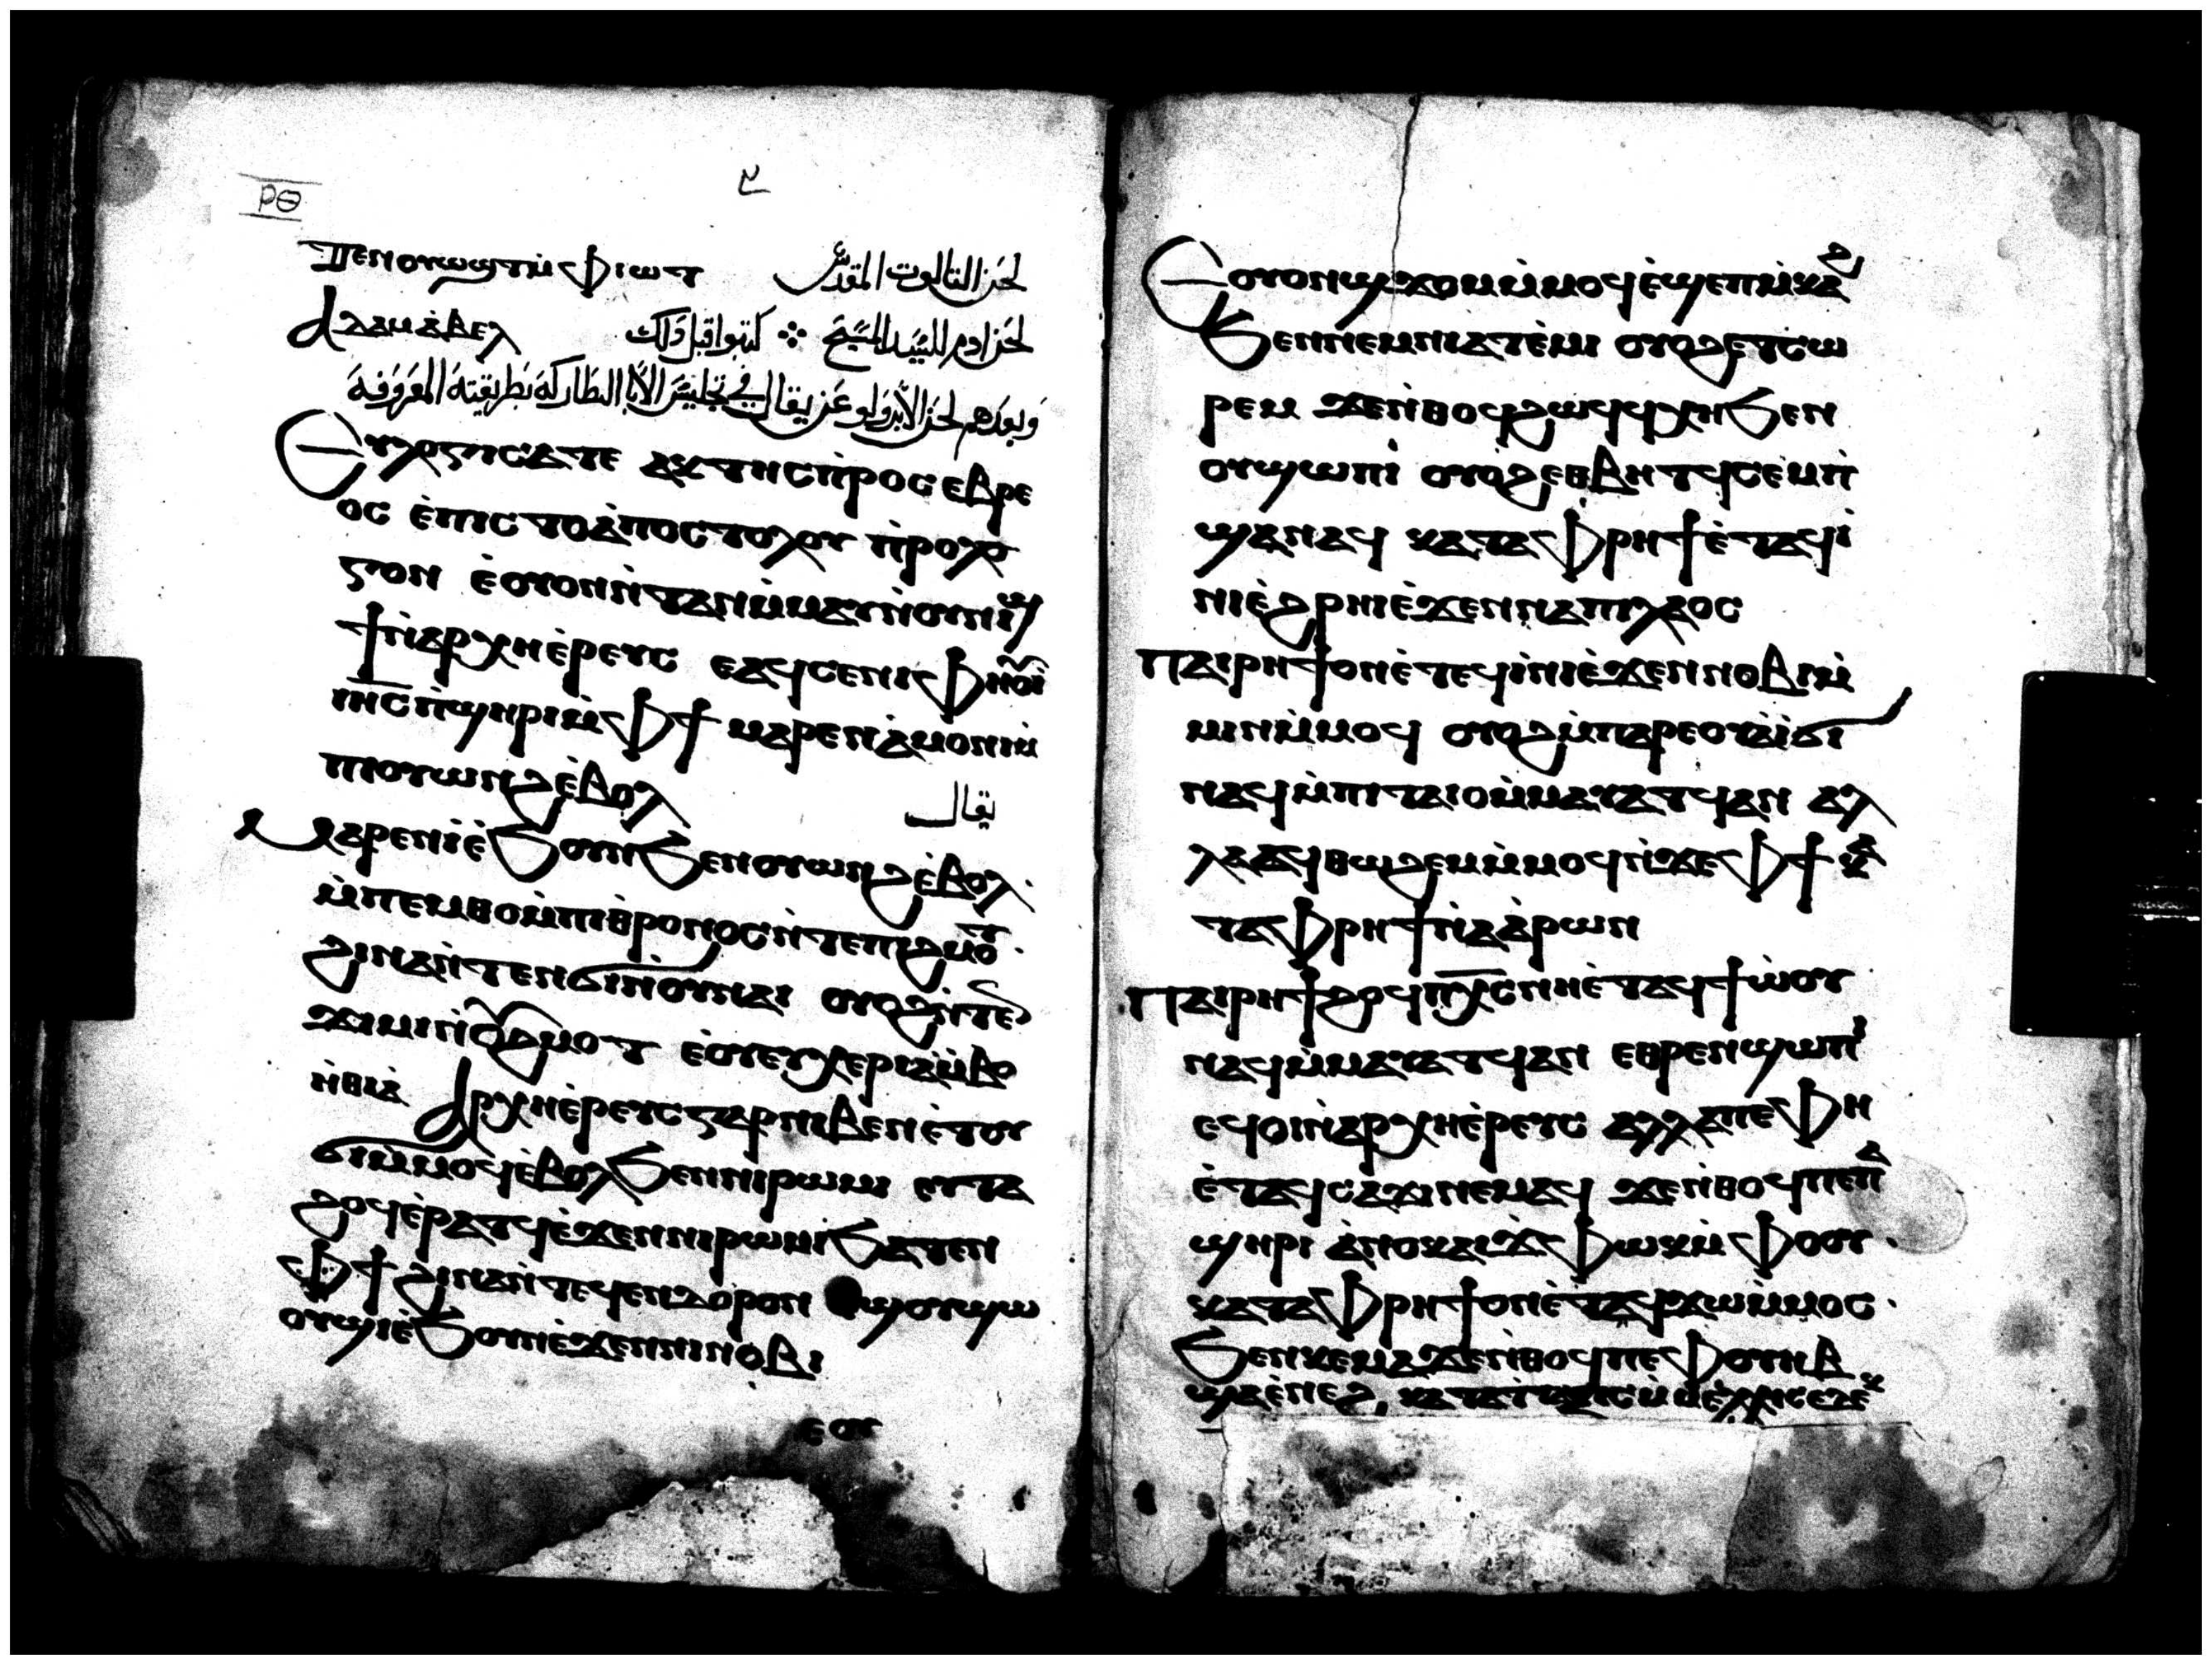 ⲢⲐ
ⲧⲉⲛⲟⲩⲱϣⲧⲙ̀ⲫⲓⲱⲧ لحن الثالوت المقدس
ⲁⲇⲁⲙⲁ̀ⲃⲉⲗ لحن ادم للسيد المسيح كتبوا قبل ذلك
وبعدهم لحن الابرولوغن يقال في تجليس الابا البطاركة بطريقته المعروفة
Ⲉⲩⲗⲟⲅⲏⲥⲁⲧⲉ ⲁⲩⲧⲏⲥⲡ̀ⲣⲟⲥ ⲉⲃⲣⲉ
ⲟⲥ ⲉ̀ⲡⲓⲥⲧⲟⲁ̀ⲡⲟⲥⲧⲟⲗⲟⲩ ⲡ̀ⲣⲟⲗⲟ
ⲅⲟⲛ ⲉ̀ⲟⲩⲟⲛⲛ̀ⲧⲁⲛⲙ̀ⲙⲁⲩⲛ̀ⲟⲩⲛⲓϣ
ϯⲛ̀ⲁⲣⲭⲏⲉ̀ⲣⲉⲩⲥ ⲉⲁϥⲥⲉⲛⲓⲫⲏⲟⲩⲓ̀
ⲓⲏⲥⲡ̀ϣⲏⲣⲓⲙ̀ⲫϯ ⲙⲁⲣⲉⲛⲁ̀ⲙⲟⲛⲓⲙ̀
ⲡⲓⲟⲩⲱⲛϩⲉ̀ⲃⲟⲗ يقال
Ⲙⲁⲣⲉⲛⲓ̀ⲉ̀ϧⲟⲩⲛϧⲉⲛⲟⲩⲱⲛϩⲉ̀ⲃⲟⲗ
ⲙ̀ⲡⲉⲙⲑⲟⲙ̀ⲡⲓⲑⲣⲟⲛⲟⲥⲛ̀ⲧⲉⲡⲓϩⲙⲟⲧ
ϩⲓⲛⲁⲛ̀ⲧⲉⲛϭⲓⲛ̀ⲟⲩⲛⲁⲓ ⲟⲩⲟϩⲛ̀ⲧⲉⲛ
ϫⲓⲙⲓⲛ̀ⲟⲩϩⲙⲟⲧ ⲉ̀ⲟⲩⲉⲩⲭⲉⲣⲓⲁⲙ̀ⲃⲟ
ⲛ̀ⲑⲓⲁ̀ Ⲁⲣⲭⲏⲉ̀ⲣⲉⲩⲥⲅⲁⲣⲛⲓⲃⲉⲛⲉ̀ⲧⲟⲩ
ϭⲓⲙ̀ⲙⲟϥⲉ̀ⲃⲟⲗϧⲉⲛⲛⲓⲣⲱⲙⲓ ⲉⲩⲧⲁ
ϩⲟϥⲉ̀ⲣⲁⲧϥⲉ̀ϫⲉⲛⲛⲓⲣⲱⲙⲓϧⲁⲧⲉⲛ
ⲫϯ ϩⲓⲛⲁⲛ̀ⲧⲉϥⲉⲛⲇⲟⲣⲟⲛ ϣⲟⲩϣⲱ
ⲟⲩϣⲓⲉ̀ϧⲟⲩⲛⲉ̀ϫⲉⲛⲛⲓⲛⲟⲃⲓ
ⲉⲟⲩ
Ⲉⲟⲩⲟⲛϣϫⲟⲙⲙ̀ⲙⲟϥⲉ̀ϣⲉⲡⲙ̀ⲕⲁϩ
ϧⲉⲛⲛⲉⲙⲛⲓⲁⲧⲉ̀ⲙⲓ ⲟⲩⲟϩⲉⲧⲥⲱ
ⲣⲉⲙ ϫⲉⲛ̀ⲑⲟϥϩⲱϥϥⲭⲏϧⲉⲛ
ⲟⲩϣⲱⲛⲓ̀ ⲟⲩⲟϩⲉⲑⲃⲏⲧϥⲥⲉⲙ̀ⲡ̀
ϣⲁⲛⲁϥ ⲕⲁⲧⲁⲫⲣⲏϯⲉ̀ⲧⲁϥⲓ̀
ⲛⲓⲉ̀ϩⲣⲏⲓⲉ̀ϫⲉⲛⲛⲁⲡⲓⲗⲁⲟⲥ
ⲡⲁⲓⲣⲏϯⲟⲛⲉ̀ⲧⲉϥⲓ̀ⲛⲓⲉ̀ϫⲉⲛⲛⲟⲃⲓⲙ̀
ⲙⲓⲛⲙ̀ⲙⲟϥ ⲟⲩⲟϩⲙ̀ⲡⲁⲣⲉⲟⲩⲁⲓ̀ϭⲓ
ⲛⲁϥⲙ̀ⲡⲓⲧⲁⲓⲟⲙ̀ⲙⲁⲩⲁⲧϥⲁⲛ ⲁⲗ
ⲗⲁⲁϥⲑⲱϩⲉⲙⲙ̀ⲙⲟϥⲛ̀ϫⲉⲫϯ ⲕⲁ
ⲧⲁⲫⲣⲏϯⲛ̀ⲁⲁ̀ⲣⲱⲛ
ⲡⲁⲓⲣⲏϯϩⲱϥⲡⲭⲥⲛⲏⲉ̀ⲧⲁϥϯⲱ̀ⲟⲩ
ⲛⲁϥⲙ̀ⲙⲁⲩⲁⲧϥⲁⲛ ⲉⲑⲣⲉⲛϣⲱⲡⲓ
ⲉϥⲟⲓⲛ̀ⲁⲣⲭⲏⲉ̀ⲣⲉⲩⲥ ⲁⲗⲗⲁⲡⲉⲫⲏ
ⲉ̀ⲧⲁϥⲥⲁϫⲓⲛⲉⲙⲁϥ ϫⲉⲛ̀ⲑⲟϥⲡⲉⲡⲁ
ϣⲏⲣⲓ ⲁ̀ⲛⲟⲕⲁⲓϫ̀ⲫⲱⲕⲙ̀ⲫⲟⲟⲩ
ⲕⲁⲧⲁⲫⲣⲏϯⲟⲛⲉ̀ⲧⲁϥϫⲱⲙ̀ⲙⲟⲥ
ϧⲉⲛⲕⲉⲙⲁϫⲉⲛ̀ⲑⲟϥⲡⲉⲫⲟⲩⲏⲃ
ϣⲁⲉ̀ⲛⲉϩ ⲕⲁⲧⲁⲧⲁⲝⲓⲥⲙ̀ⲙⲉⲗⲭⲓⲥⲉⲇⲉⲕ